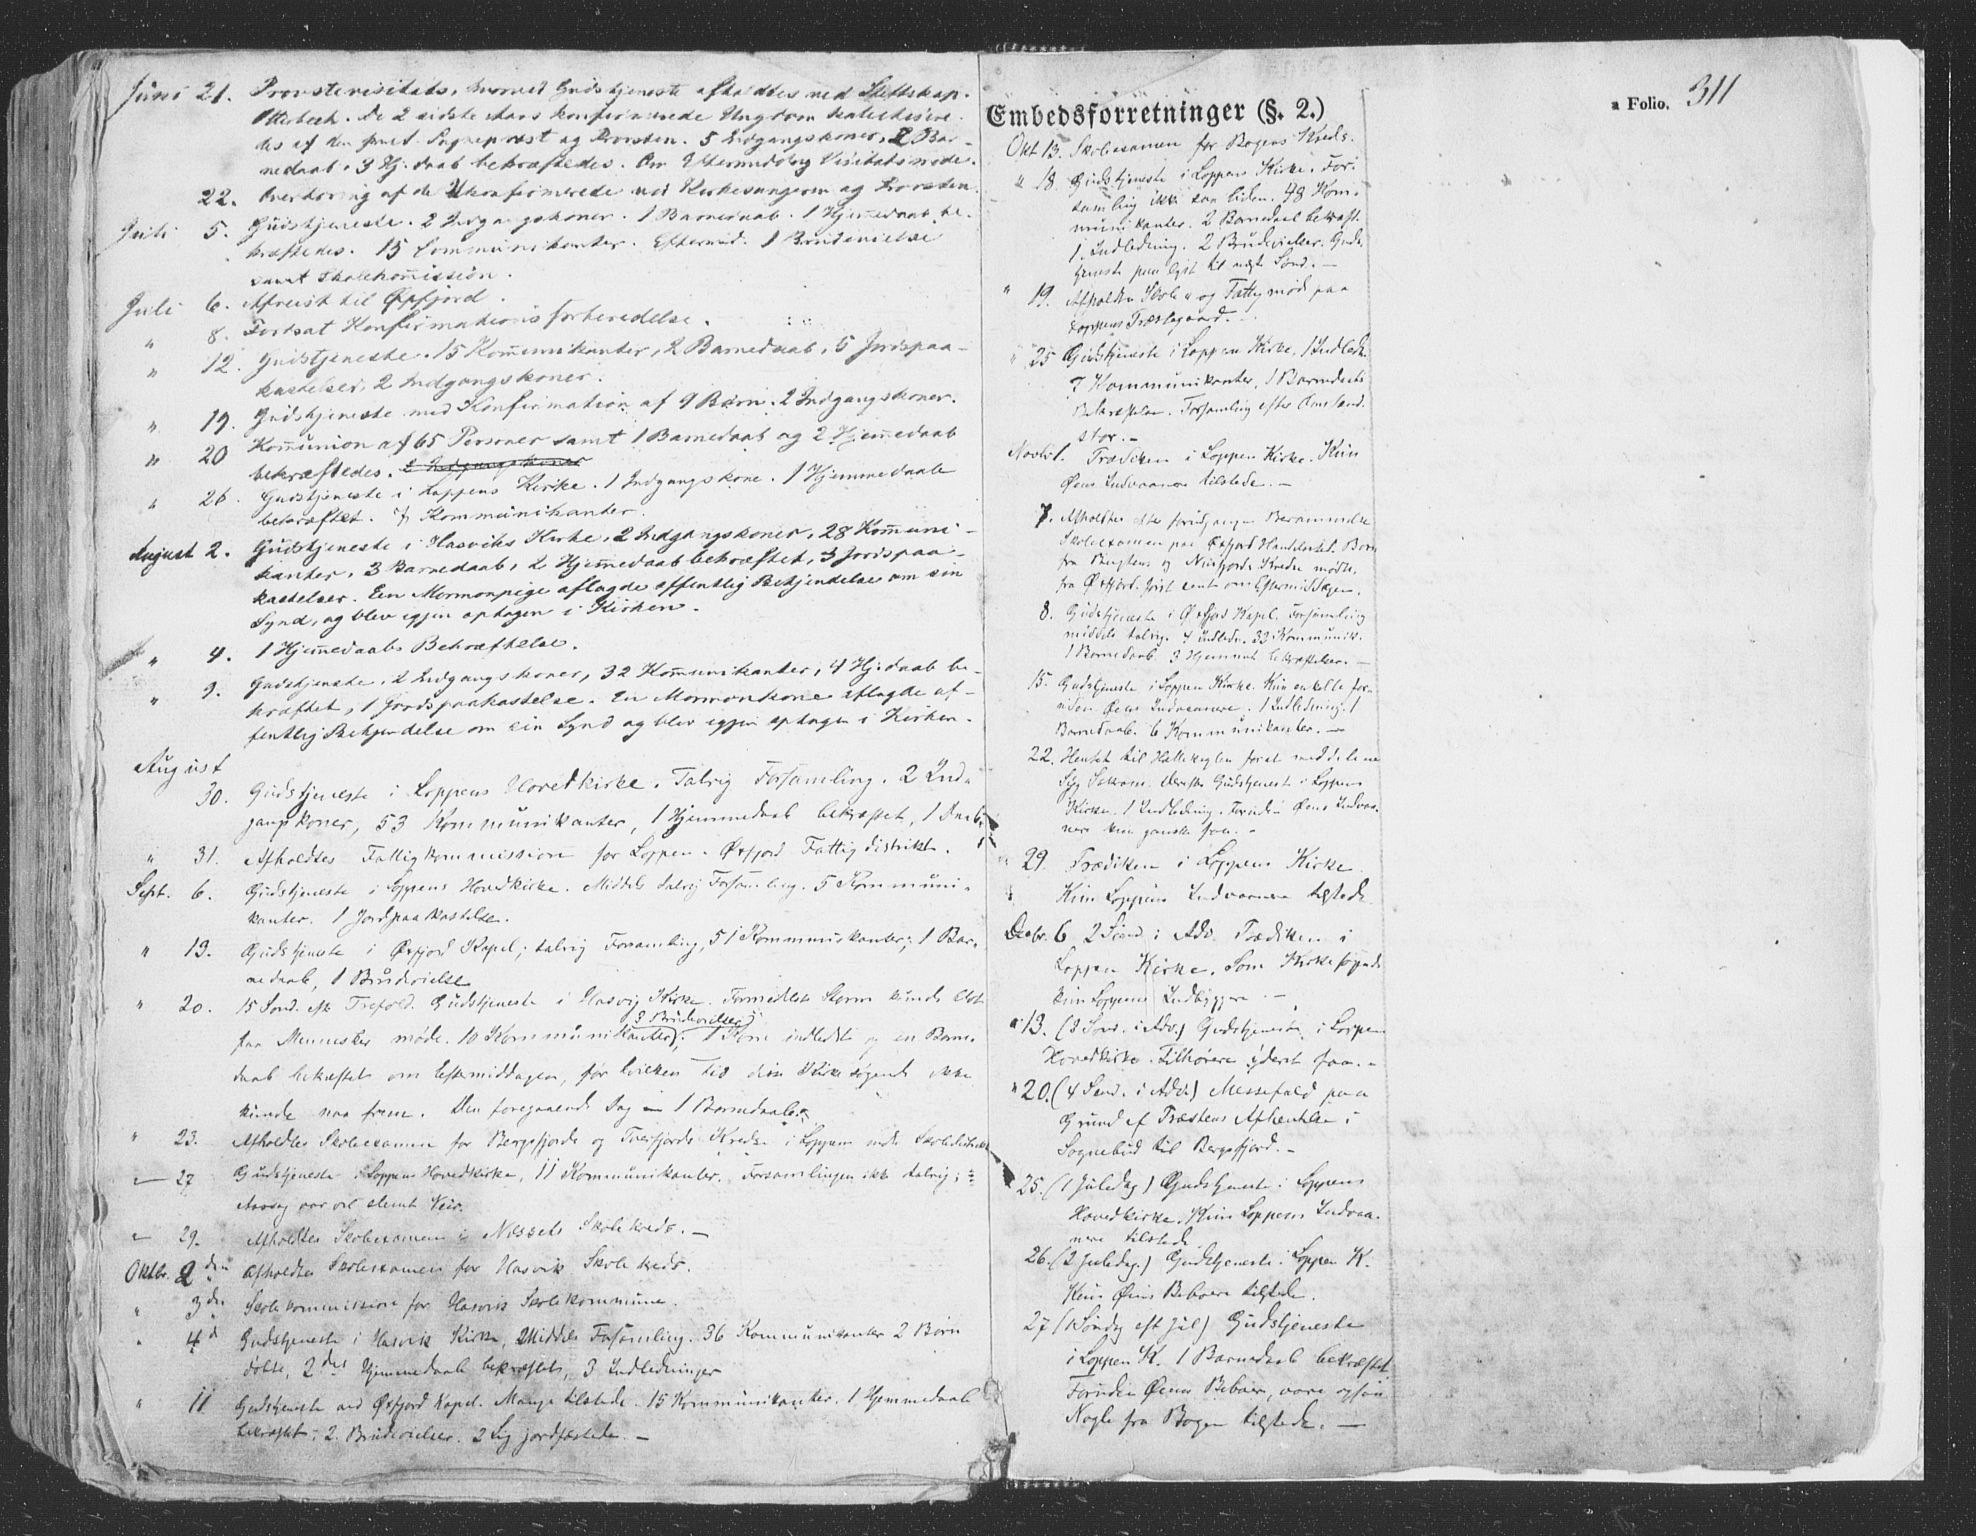 Juni 21. Provstevisitats, hvorved Gudstjeneste afholdtes ved
De 2 sidste Aars konfirmerede Ungdom katechisere-
des af den Sognepræst og Provsten. 5 Indgangskoner, 2 Bar-
nedaab, 3 Hj. daab bekræftedes. Om Eftermiddag Visitatsmøde.
22. Overhøring af de Ukonfirmerede ved Kirkesangeren og Provsten.
Juli 5. Gudstjeneste. 2 Indgangskoner. 1 Barnedaab. 1 Hjemedaab be-
kræftedes. 15 Communikanter. Eftermid. 1 Brudevielse
samt Skolekomission.
Juli 6. Afreist til Øxfjord.
" 8. Fortsat Konfirmationsforberedelse.
" 12. Gudstjeneste. 15 Komunikanter, 2 Barnedaab, 5 Jordspaa-
kastelser, 2 Indgangskoner.
" 19. Gudstjeneste med Konfirmation af 9 Børn. 2 Indgangskoner.
" 20 Komunion af 65 Personer samt 1 Barnedaab og 2 Hjemedaab
bekræftedes. 2 Indgangskoner
" 26. Gudstjeneste i Loppens Kirke. 1 Indgangskone. 1 Hjemmedaab
bekræftet. 7 Kommunikanter.
August 2. Gudstjeneste i Hasviks Kirke, 2 Indgangskoner, 28 Komuni-
kanter, 3 Barnedaab, 2 Hjemedaab bekræftet, 3 Jordspaa-
kastelser. En Mormonpige aflagde offentlig Bekjendelse om sin
Synd, og blev igjen optagen i Kirken.
" 4. 1 Hjemedaabs Bekræftelse.
" 9. Gudstjeneste, 2 Indgangskoner, 32 Komunikanter, 4 Hj. daab be-
kræftet, 1 Jordspaakastelse. En Mormonkone aflagde of-
fentlig Bekjendelse om sin Synd og blev igjen optagen i Kirken.
August
30. Gudstjeneste i Loppens Hovedkirke. Talrig Forsamling. 2 Ind-
gangskoner, 53 Kommunikanter, 1 Hjemmedaab bekræftet, 1 Daab.
" 31. Afholdtes Fattigkommission for Loppen-Øxfjord Fattigdistrikt.
Sept. 6. Gudstjeneste i Loppens Hovedkirke. Middels talrig Forsamling. 5 Kommuni-
kanter. 1 Jordpaakastelse.
" 13. Gudstjeneste i Øxfjord Kapel; talrig Forsamling, 51 Kommunikanter; 1 Bar-
nedaab, 1 Brudevielse
" 20. 15 Sønd. eft. Trefold. Gudstjeneste i Hasvig Kirke. Formedelst Storm kunde blot
3 Brudevielser
faa Mennesker møde. 10 Kommunikanter, 1 Kone indledet og en Barne-
daab bekræftet om Eftermiddagen, før hvilken Tid disse Kirkesøgende ikke
kunde naa frem. Den foregaaende Dag 1 Barnedaab.
" 23. Afholdtes Skoleexamen for Bergsfjords og Tverfjords Kredse i Loppens
" 27 Gudstjeneste i Loppens Hovedkirke, 11 Kommunikanter. Forsamlingen ikke talrig;
Aarsag var vel slemt Veir.
" 29. Afholdtes Skoleexamen i Næssets Skolekreds. —
Oktbr. 2den Afholdtes Skoleexamen for Hasvik Skolekreds.
" 3die Skolekommission for Hasvik Skolekommune.
" 4d Gudstjeneste i Hasvik Kirke, Middels Forsamling. 36 Kommunikanter 2 Børn
døbte, 2 des Hjemmedaab bekræftet, 3 Indledninger
" 11 Gudstjeneste ved Øxfjord Kapel. Mange tilstede. 15 Kommunikanter. 1 Hjemmedaab
bekræftet; 2 Brudevielser. 2 Lig jordfæstede. —
Embedsforretninger (§. 2.)
a Folio. 311
Okt 13. Skoleexamen for Bogens Kreds.
" 18. Gudstjeneste i Loppens Kirke. For-
samling ikke saa liden. 48 Kom-
munikanter. 2 Barnedaab bekræft.
1 Indledning. 2 Brudevielser. Guds-
tjeneste paa lyst til næste Sønd. —
" 19. Afholdtes Skole- og Fattigmøde paa
Loppens Præstegaard.
" 25 Gudstjeneste i Loppen Kirke, 1 Indledn.
7 Kommunikanter, 1 Barnedaabs
Bekræftelse. Forsamling efter Omstænd.
stor. —
Novbr 1. Prædiken i Loppen Kirke. Kun
Øens Indvaanere tilstede. —
7. Afholdtes efter foregaaende Berammelse
Skoleexamen paa Øxfjord Handelssted. Børn
fra og Nuvsfjords Kredse mødte,
fra Øxfjord først sent om Eftermiddagen.
8. Gudstjeneste i Øxfjord Kapel. Forsamling
middels talrig. 4 Indledn. 33 Kommunik.
1 Barnedaab. 3 Hjemmed. bekræftelser. —
15. Gudstjeneste i Loppen Kirke. Kun enkelte for-
uden Øens Indvaanere. 1 Indledning. 1
Barnedaab. 6 Kommunikanter. —
22. Hentet til forat meddele en
Syg Sakram. derefter Gudstjeneste i Loppens
Kirke. 1 Indledning. Foruden Øens Indvaa-
nere kun ganske faa. —
" 29. Prædiken i Loppens Kirke
Kun Loppens Indvaanere tilstede
Decbr. 6 2 Sønd. i Adv. Prædiken i
Loppen Kirke. Som Kirkesøgende
kun Loppens Indbyggere. —
" 13. (3 Sønd. i Adv.) Gudstjeneste i Loppens
Hovedkirke. Tilhørere yderst faa. —
" 20. (4 Sønd. i Adv.) Messefald paa
Grund af Præstens Afhentelse i
Sognebud til Bergsfjord. —
25. (1 Juledag) Gudstjeneste i Loppens
Hovedkirke. Kun Loppens Indvaa-
nere tilstede
26. (2 Juledag.) Gudstjeneste i Loppen K.
Kun Øens Beboere tilstede.
27 (Søndag eft Jul) Gudstjeneste
i Loppen K. 1 Barnedaab bekræftet.
Foruden Øens Beboere, vare ogsaa
Nogle fra Bogen tilstede. —